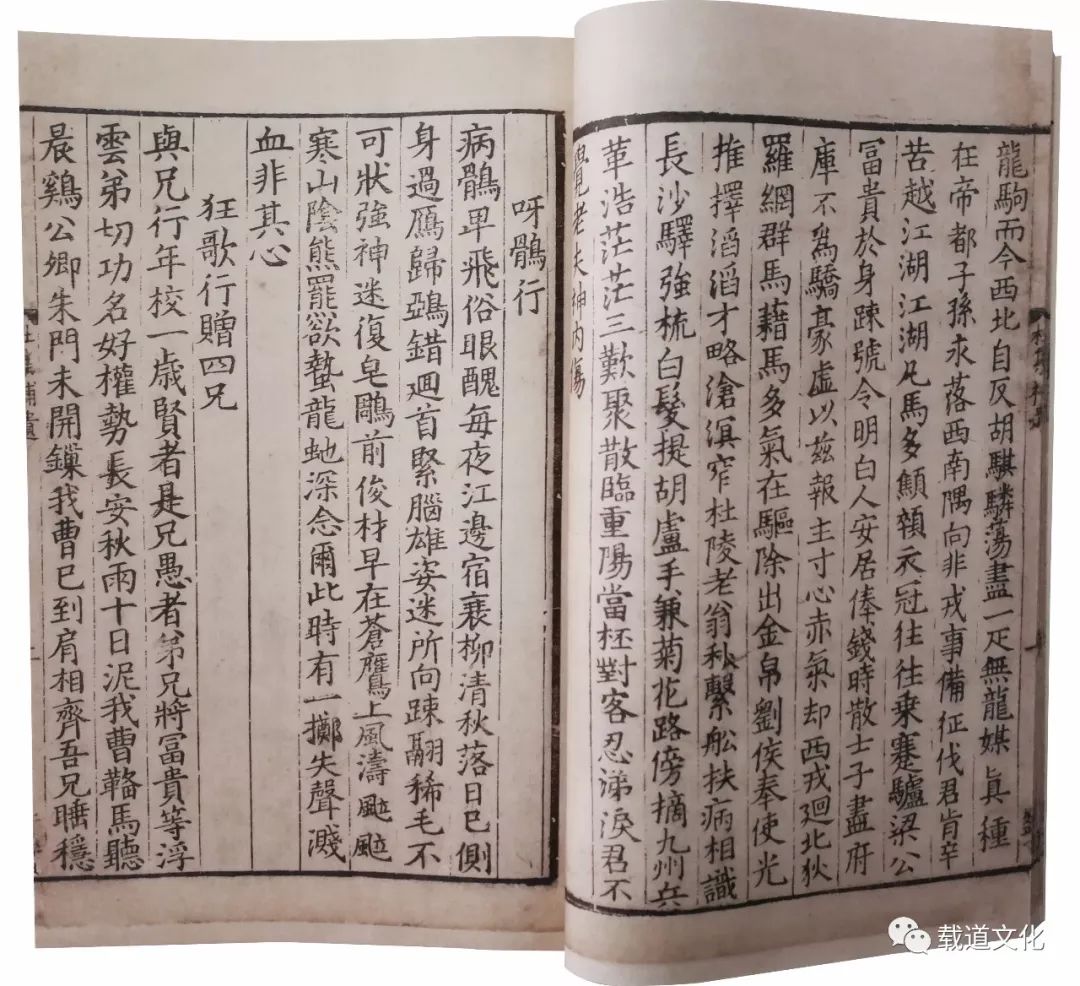 龍駒而今西北自反胡騏驎蕩盡一疋無龍媒眞種
在帝都子孫永落西南隅向非戎事備征伐君肯辛
苦越江湖江湖凡馬多顦顇衣冠往往乗蹇驢梁公
冨貴於身踈號令明白人安居俸錢時散士子盡府
庫不爲驕豪虚以兹報主寸心赤氣却西戎廻北狄
羅網群馬藉馬多氣在驅除出金帛劉侯奉使光
推擇滔滔才略滄溟窄杜陵老翁秋繫舩扶病相識
長沙驛強梳白髮提胡盧手兼菊花路傍摘九州兵
革浩茫茫三歎聚散臨重陽當杯對客忍涕淚君不
覺老夫神内傷
呀鶻行
病鶻卑飛俗眼醜每夜江邊宿衰柳清秋落日已側
身過鴈歸鵶錯廻首緊腦雄姿迷所向踈翮稀毛不
可狀強神迷復皂鵰前俊材早在蒼鷹上風濤颯颯
寒山陰熊羆欲蟄龍虵深念爾此時有一擲失聲濺
血非其心
狂歌行贈四兄
與兄行年校一歲賢者是兄愚者弟兄將冨貴等浮
雲弟切功名好權勢長安秋雨十日泥我曹鞴馬聽
晨鷄公卿朱門未開鏁我曹已到肩相齊吾兄睡穩
载道文化